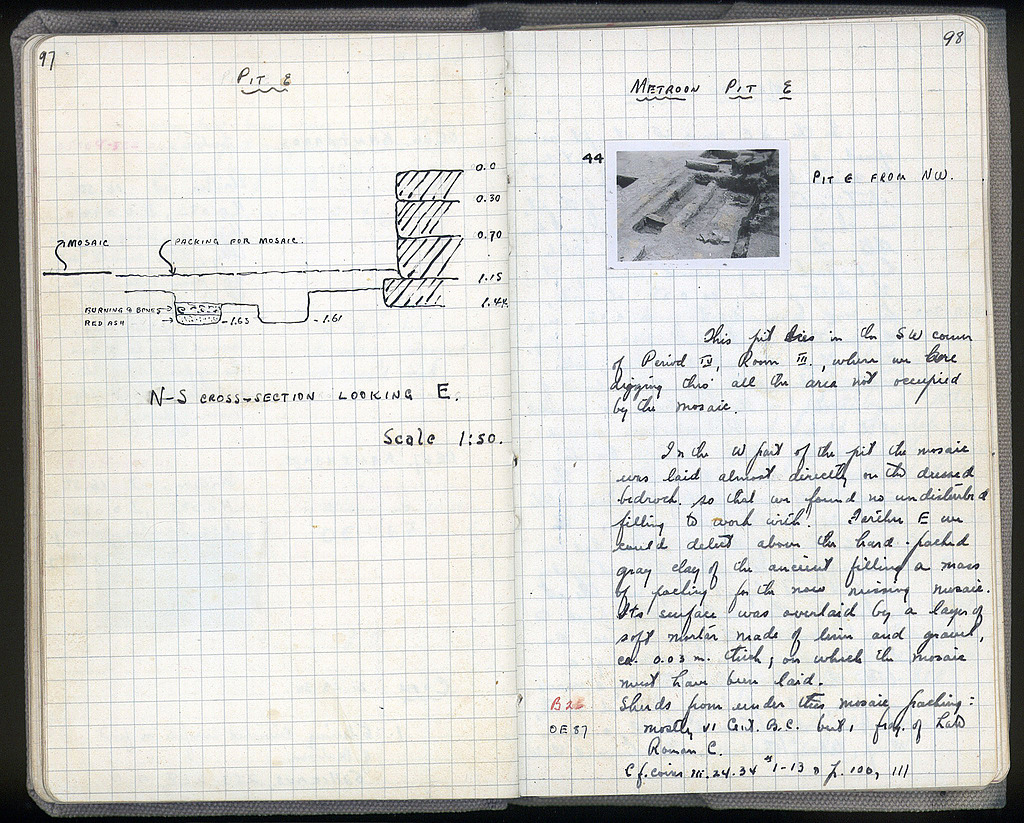 97
PIT E
0.0
0.30
0.70
MOSAIC
PACKING FOR MOSAIC.
1.15
1.44
BURNING & BONES
RED ASH
-1.63
-1.61
N-S CROSS-SECTION LOOKING E.
Scale 1:50.
98
METROON PIT E
44
PIT E FROM NW.
This pit lies in the SW corner
of Period IV, Room III, where we were
digging thro' all the area not occupied
by the mosaic.
In the W part of the pit the mosaic
was laid almost directly on the dressed
bedrock so that we found no undisturbed
filling to work with. Farther E we
could detect above the hard-packed
gray clay of the ancient filling a mass
of packing for the now missing mosaic.
Its surface was overlaid by a layer of
soft mortar made of lime and gravel,
ca. 0.03 m. thick, on which the mosaic
must have been laid.
B 26
Sherds from under this mosaic packing:
OE 87
mostly VI Cent. B.C. but 1 frag. of Late
Roman C.
Cf. coins III.24.34 #1-13 p. 100, 111